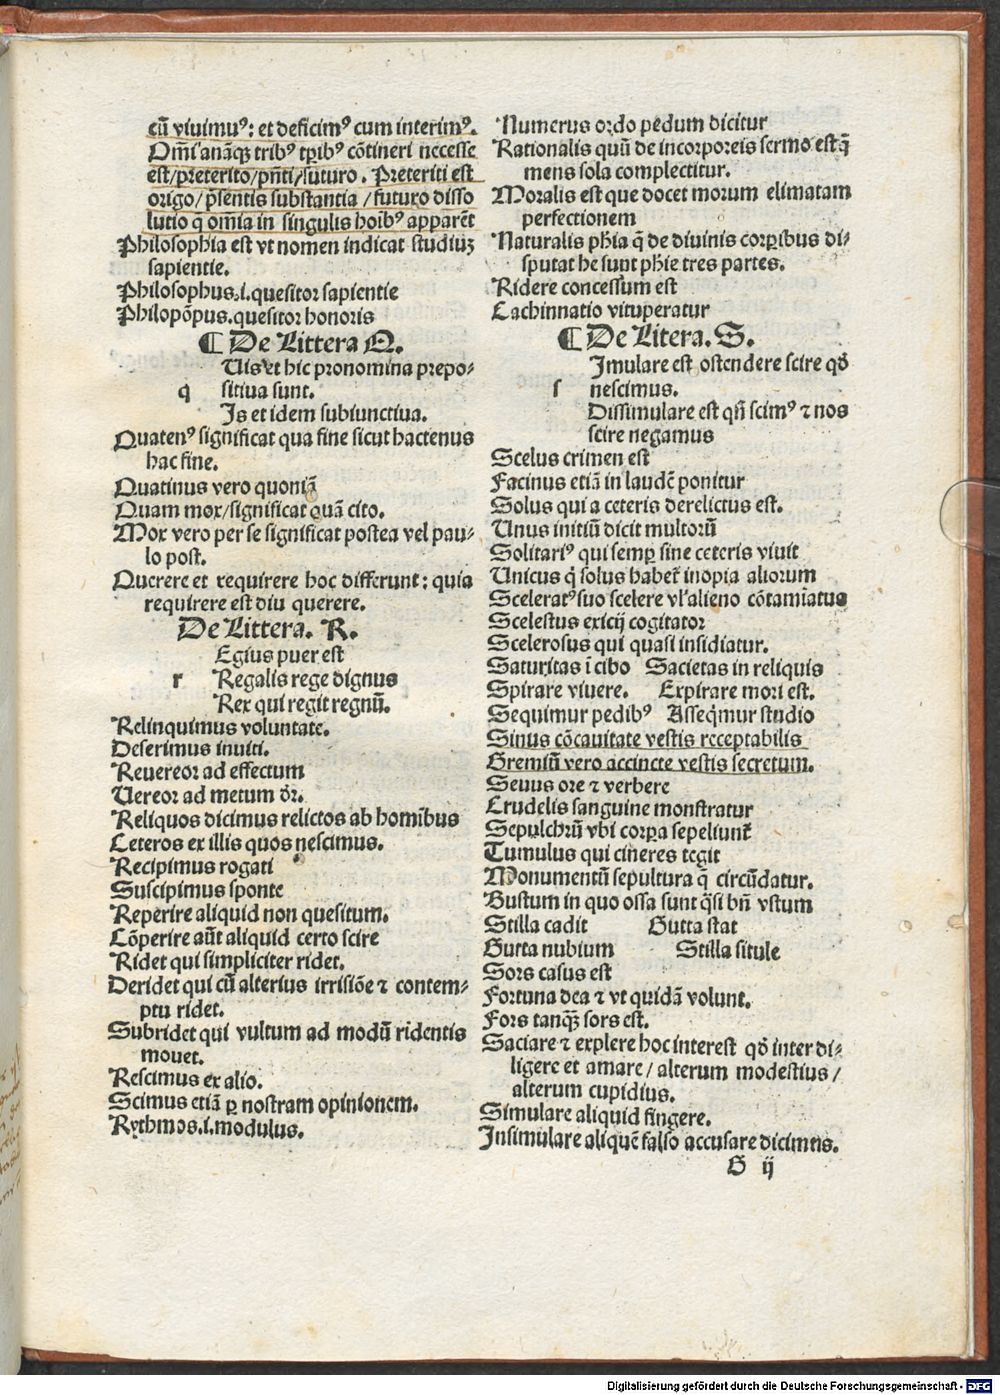 cū viuimu⁹: et deficim⁹ cum interim⁹.
Om̄i anāq̄ trib⁹ tꝑib⁹ cōtineri necesse
est/preterito/pn̄ti/futuro. Preteriti est
origo/ p̄sentis substantia /futuro disso
lutio q̄ om̄ia in singulis hoib⁹ apparēt
Philosophia est vt nomen indicat studiuꝫ
sapientie.
Philosophus.i.quesitor sapientie
Philopōpus.quesitor honoris
¶ De Littera Q.
Uis et hic pronomina prepo-
q sitiua sunt.
Is et idem subiunctiua.
Quaten⁹ significat qua fine sicut hactenus
hac fine.
Quatinus vero quoniā
Quam mox/significat quā cito.
Mox vero per se significat postea vel pau-
lo post.
Querere et requirere hoc differunt: quia
requirere est diu querere.
De Littera. R.
Egius puer est
r Regalis rege dignus
Rex qui regit regnū.
Relinquimus voluntate.
Deserimus inuiti.
Reuereor ad effectum
Uereor ad metum d̄r.
Reliquos dicimus relictos ab homībus
Ceteros ex illis quos nescimus.
Recipimus rogati
Suscipimus sponte
Reperire aliquid non quesitum.
Cōperire aūt aliquid certo scire
Ridet qui simpliciter ridet.
Deridet qui cū alterius irrisiōe ⁊ contem-
ptu ridet.
Subridet qui vultum ad modū ridentis
mouet.
Rescimus ex alio.
Scimus etiā ꝑ nostram opinionem.
Rythmos.i.modulus.
Numerus ordo pedum dicitur
Rationalis quū de incorporeis sermo est q̄
mens sola complectitur.
Moralis est que docet morum elimatam
perfectionem
Naturalis phīa q̄ de diuinis corꝑibus di-
sputat he sunt phīe tres partes.
Ridere concessum est
Cachinnatio vituperatur
¶ De Litera. S.
Imulare est ostendere scire qd̄
s nescimus.
Dissimulare est qn̄ scim⁹ ⁊ nos
scire negamus
Scelus crimen est
Facinus etiā in laudē ponitur
Solus qui a ceteris derelictus est.
Unus initiū dicit multorū
Solitari⁹ qui semꝑ sine ceteris viuit
Unicus q̇ solus habet̄ inopia aliorum
Scelerat⁹ suo scelere vl̓ alieno cōtamīatus
Scelestus exicij cogitator
Scelerosus qui quasi insidiatur.
Saturitas ī cibo Sacietas in reliquis
Spirare viuere. Expirare mori est.
Sequimur pedib⁹ Asseq̇mur studio
Sinus cōcauitate vestis receptabilis
Gremiū vero accincte vestis secretum.
Seuus ore ⁊ verbere
Crudelis sanguine monstratur
Sepulchrū vbi corꝑa sepeliunt̄
Tumulus qui cineres tegit
Monumentū sepultura q̄ circūdatur.
Bustum in quo ossa sunt q̄si bn̄ vstum
Stilla cadit Gutta stat
Gutta nubium Stilla situle
Sors casus est
Fortuna dea ⁊ vt quidā volunt.
Fors tanq̄ꝫ sors est.
Saciare ⁊ explere hoc interest qd̄ inter di-
ligere et amare/ alterum modestius/
alterum cupidius.
Simulare aliquid fingere.
Insimulare aliquē falso accusare dicimus.
G ij
Digitalisierung gefördert durch die Deutsche Forschungsgemeinschaft - DFG